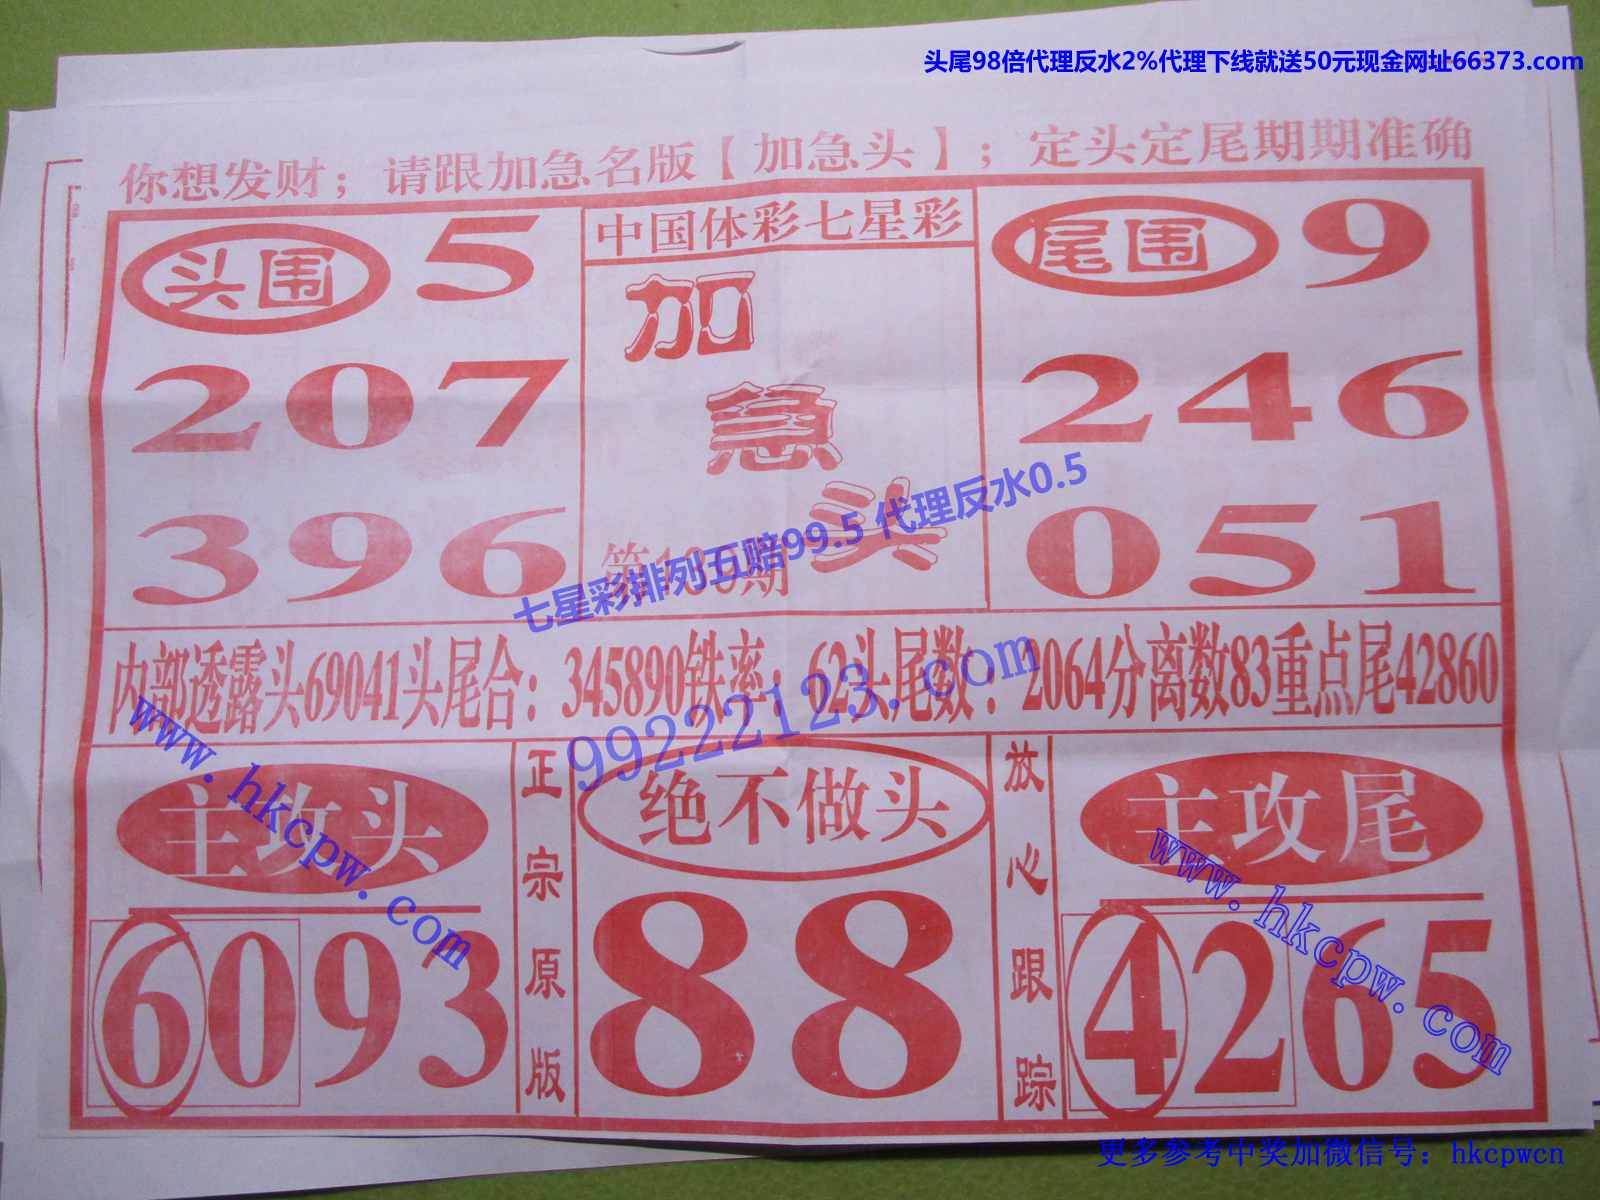 头尾98倍代理反水2%代理下线就送50元现金网址66373.com
你想发财；请跟加急名版【加急头】；定头定尾期期准确
头围 5
207
396
中国体彩七星彩
加
急
头
尾围 9
246
051
七星彩排列五赔99.5 代理反水0.5
99222123.com
内部透露头69041头尾合：345890铁率：62头尾数：2064分离数83重点尾42860
www.hkcpw.com
主攻头
6093
正宗原版
绝不做头
88
放心跟踪
主攻尾
4265
www.hkcpw.com
更多参考中奖加微信号：hkcpwcn